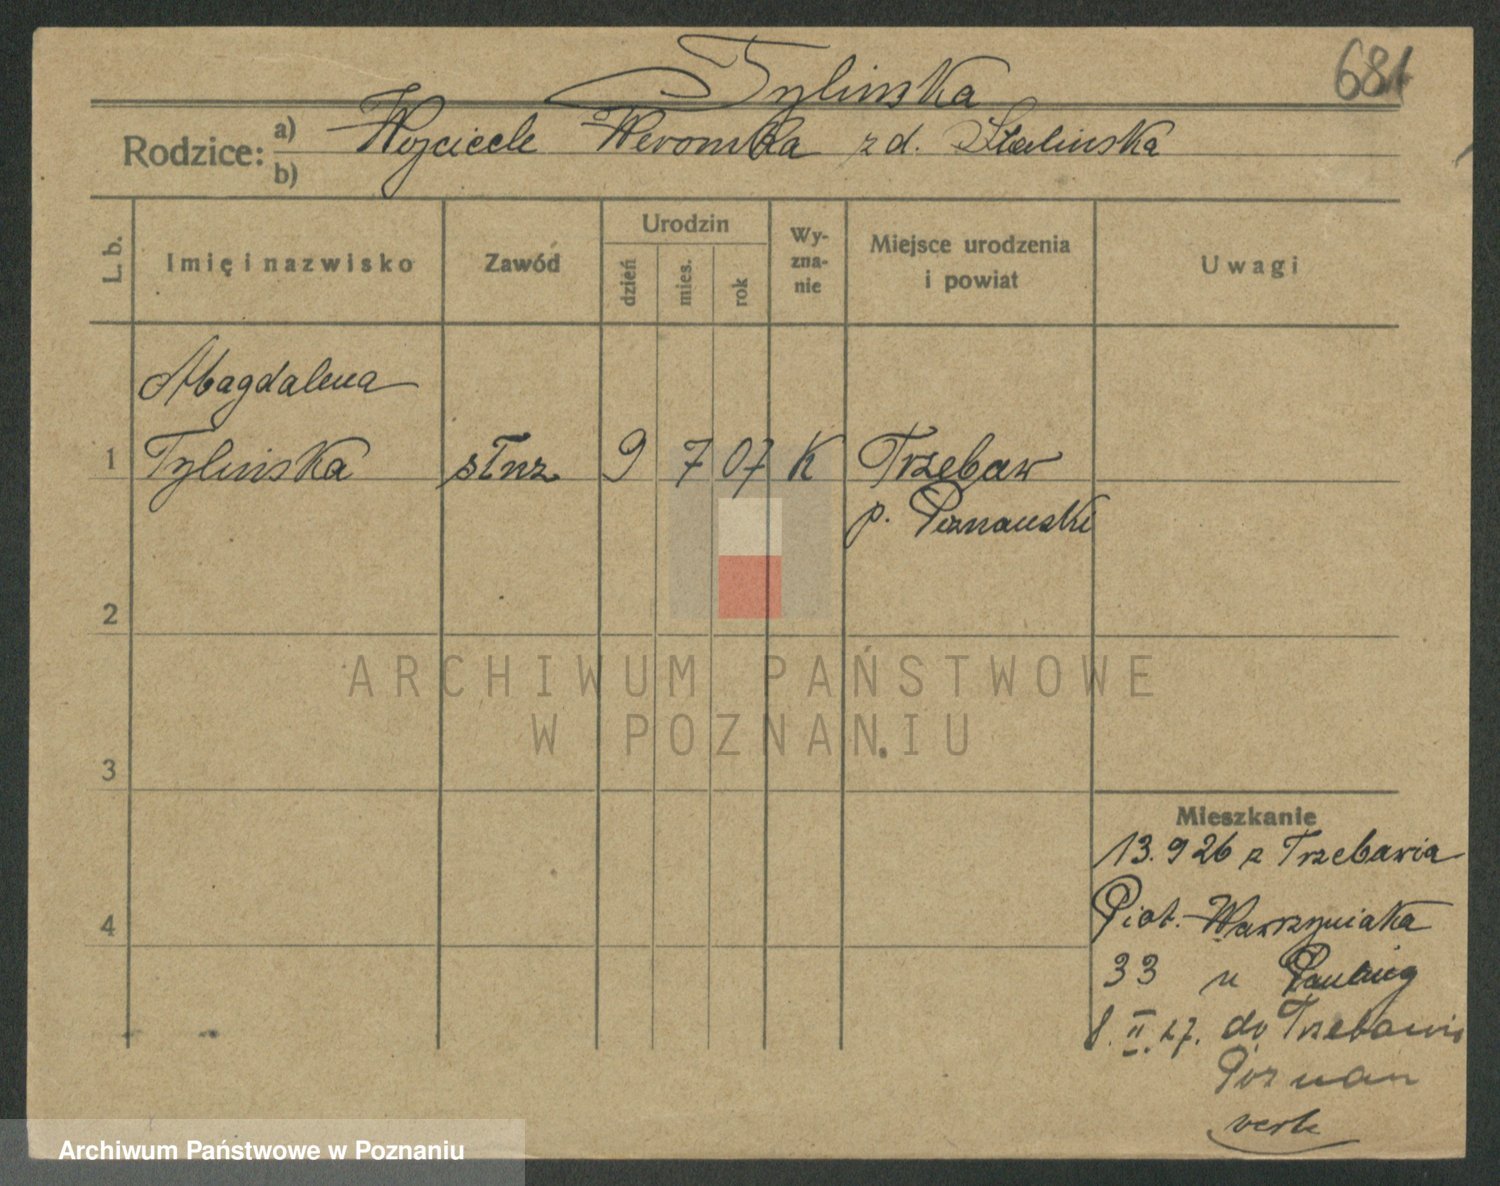 681
Tylinska
Rodzice: a) Wojciech Weronika z d. Stalinska
b)
L. b.
Imię i nazwisko
Zawód
Urodzin
dzień
mies.
rok
Wy-
zna-
nie
Miejsce urodzenia
i powiat
Uwagi
Magdalena
1 Tylinska służ 9 7 07 K Trzebaw
p. Poznański
2
ARCHIWUM PAŃSTWOWE
W POZNANIU
3
Mieszkanie
13. 9 26 z Trzebawia
Piotr. Wawrzyniaka
4
33 u
8. II. 27. do Trzebawia
Poznan
Archiwum Państwowe w Poznaniu